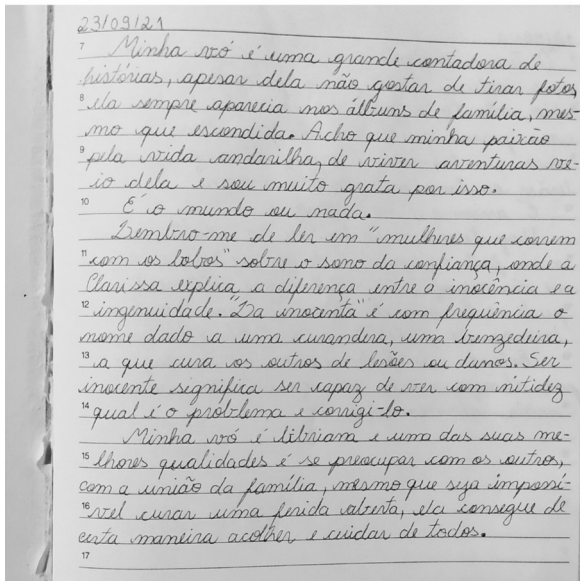 23/09/21
7 Minha vó é uma grande contadora de
histórias, apesar dela não gostar de tirar fotos,
8 ela sempre aparecia nos álbuns de família, mes-
mo que escondida. Acho que minha paixão
9 pela vida andarilha, de viver aventuras ve-
io dela e sou muito grata por isso.
10 É o mundo ou nada.
Lembro-me de ler em "mulheres que correm
11 com os lobos" sobre o sono da confiança, onde a
Clarissa explica a diferença entre a inocência e a
12 ingenuidade. "La inocenta" é com frequência o
nome dado a uma curandeira, uma benzedeira,
13 a que cura os outros de lesões ou danos. Ser
inocente significa ser capaz de ver com nitidez
14 qual é o problema e corrigi-lo.
Minha vó é libriam e uma das suas me-
15 lhores qualidades é se preocupar com os outros,
com a união da família, mesmo que seja impossí-
16 vel curar uma ferida aberta, ela consegue de
certa maneira acolher e cuidar de todos.
17